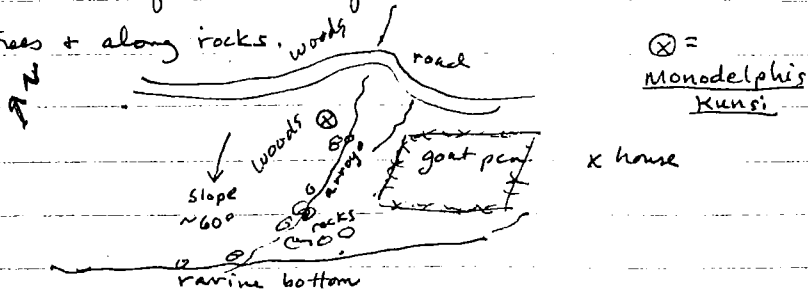 trees + along rocks.
woods
road
⊗ =
Monodelphis
Kunsi
N
woods ⊗
arroyo
goat pen
x house
slope
~60°
rocks
ravine bottom